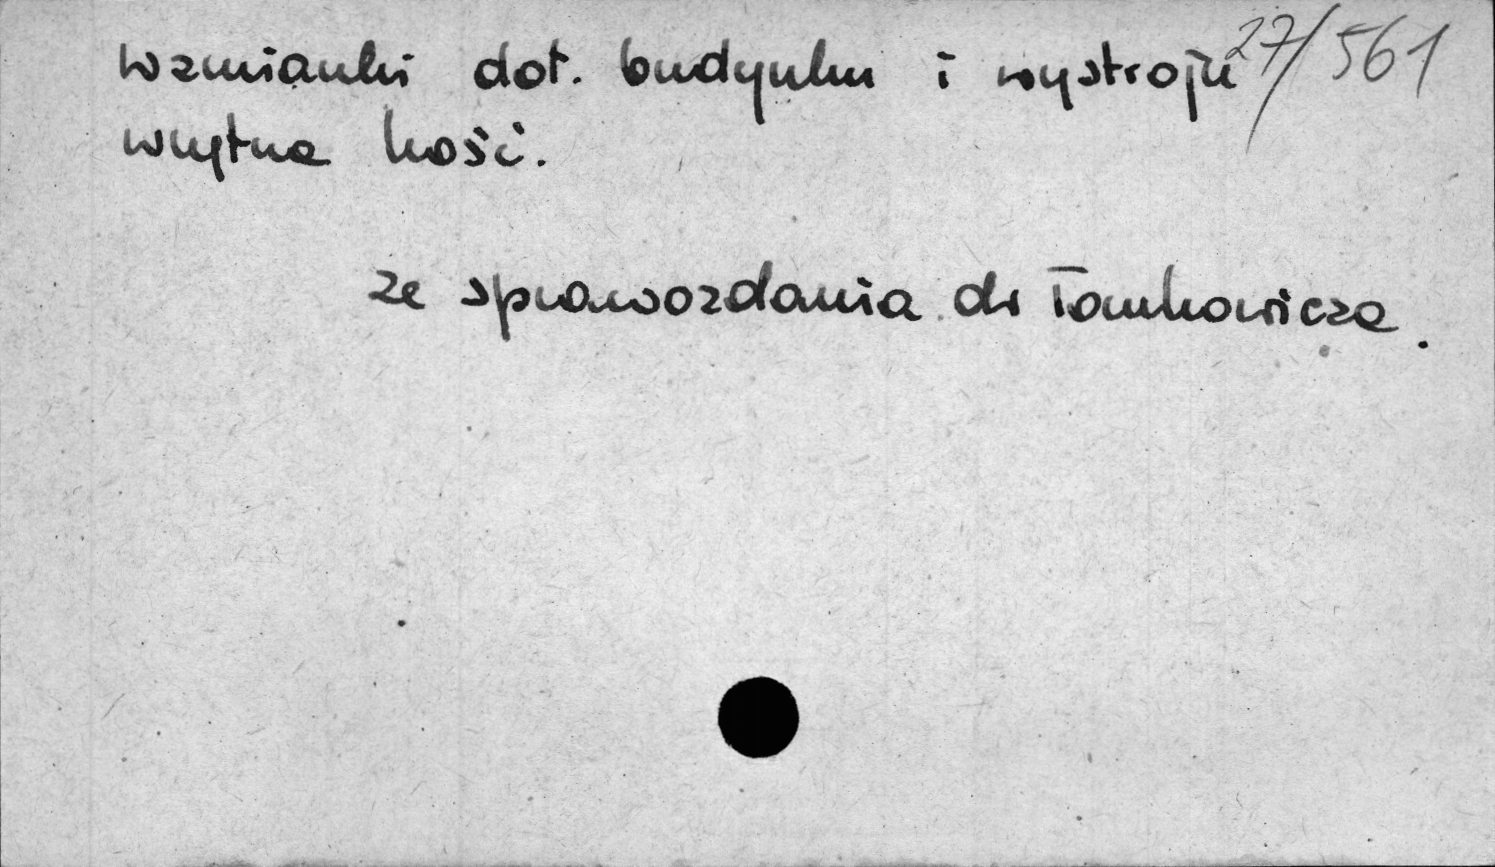 wzmianki dot. budynku i wystroju 27/561
wnętrza kość.
ze sprawozdania dr Tomkowicza.